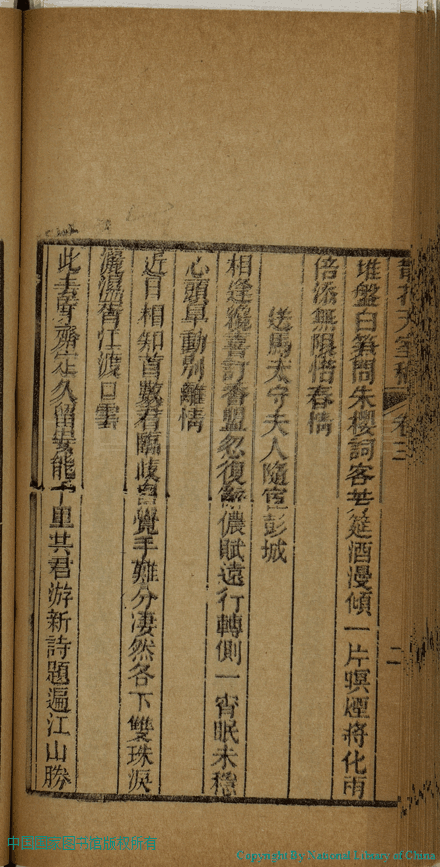 散花天室稿 卷三 二
堆盤白筍間朱櫻詞客 筵酒漫傾一片暝煙將化雨
倍添無限惜春情
送馬太守夫人隨宦彭城
相逢纔喜訂香盟忽復 儂賦遠行轉側一宵眠未穩
心頭早動別離情
近日相知首數君臨歧 覺手難分凄然各下雙珠淚
灑濕 江渡口雲
此去 齋定久留 能千里共君游新詩題遍江山勝
Copyright by National Library of China